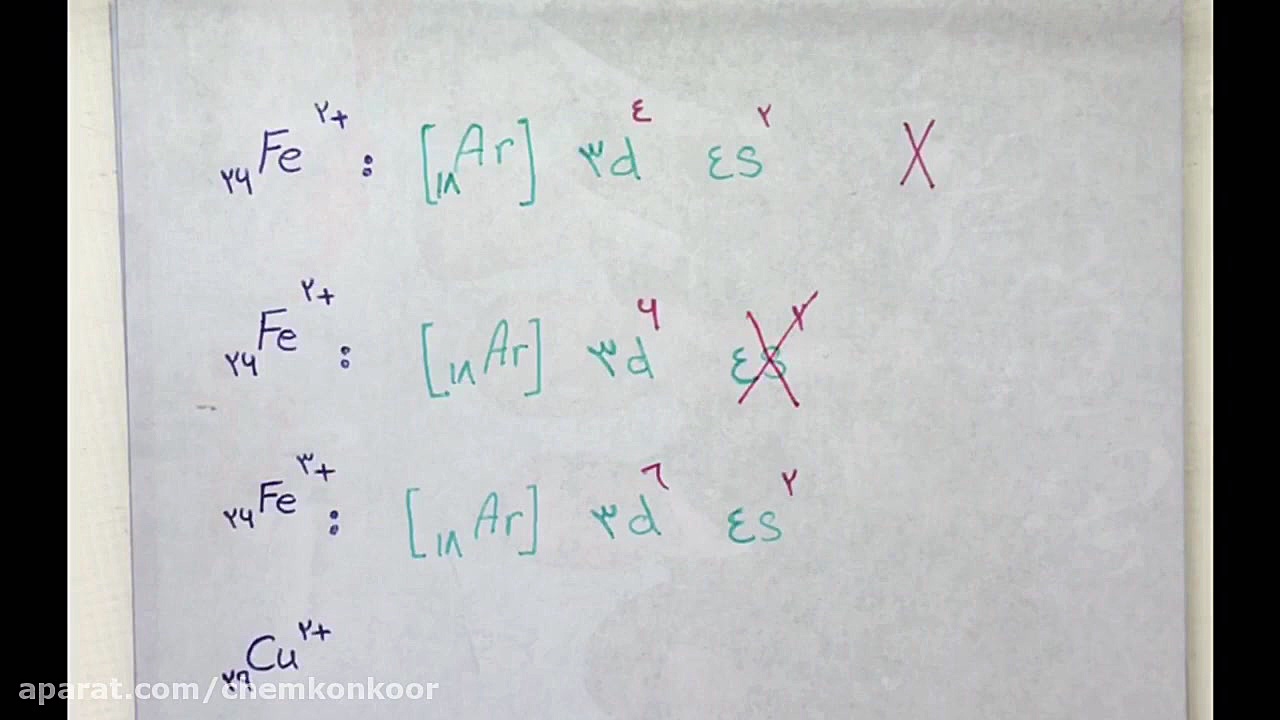 ۲۶Fe۲+ : [۱۸Ar] ۳d۴ ۴s۲ X
۲۶Fe۲+ : [۱۸Ar] ۳d۶ ۴s۲
۲۶Fe۳+ : [۱۸Ar] ۳d۶ ۴s۲
۲۹Cu۲+
aparat.com/chemkonkoor